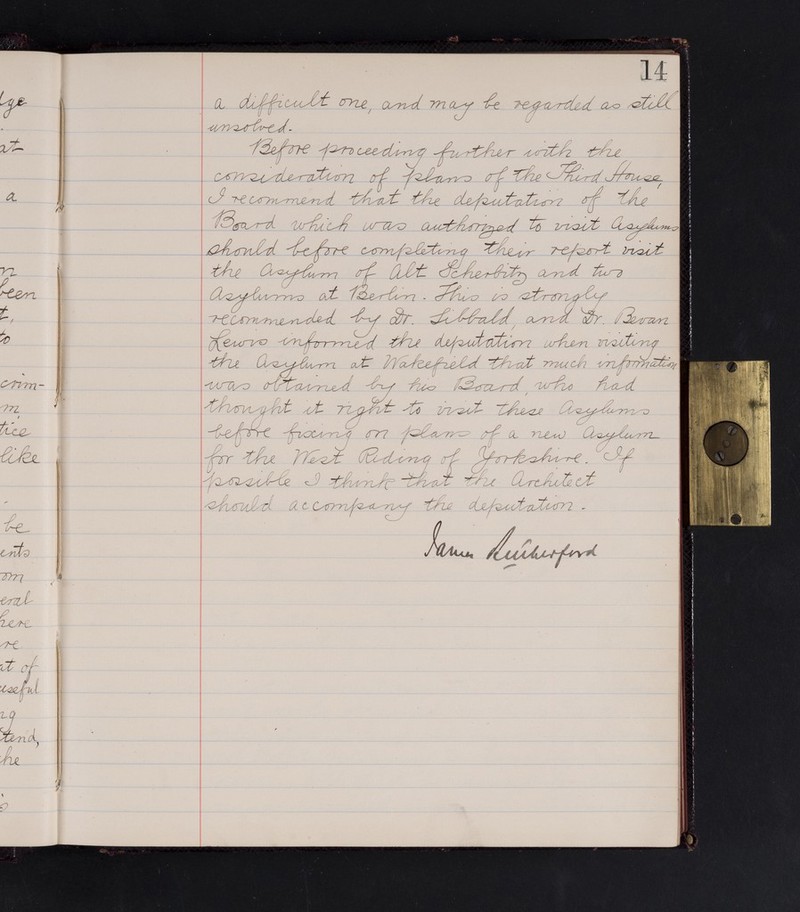 14
a difficult one, and may be regarded as still
unsolved.
Before proceeding further with the
consideration of plans of the Third House,
I recommend that the deputation of the
Board which was authorized to visit Asylums
should before completing their report visit
the Asylum of Alt Scherbitz and two
Asylums at Berlin. This is strongly
recommended by Dr. Sibbald, and Dr. Bevan
Lewis informed the deputation when visiting
the Asylum at Wakefield that much information
was obtained by his Board, who had
thought it right to visit these Asylums
before fixing on plans of a new Asylum
for the West Riding of Yorkshire. If
possible I think that the Architect
should accompany the deputation.
James Rutherford
at
a
been
to
crim-
like
be
om
here
at of
useful
the